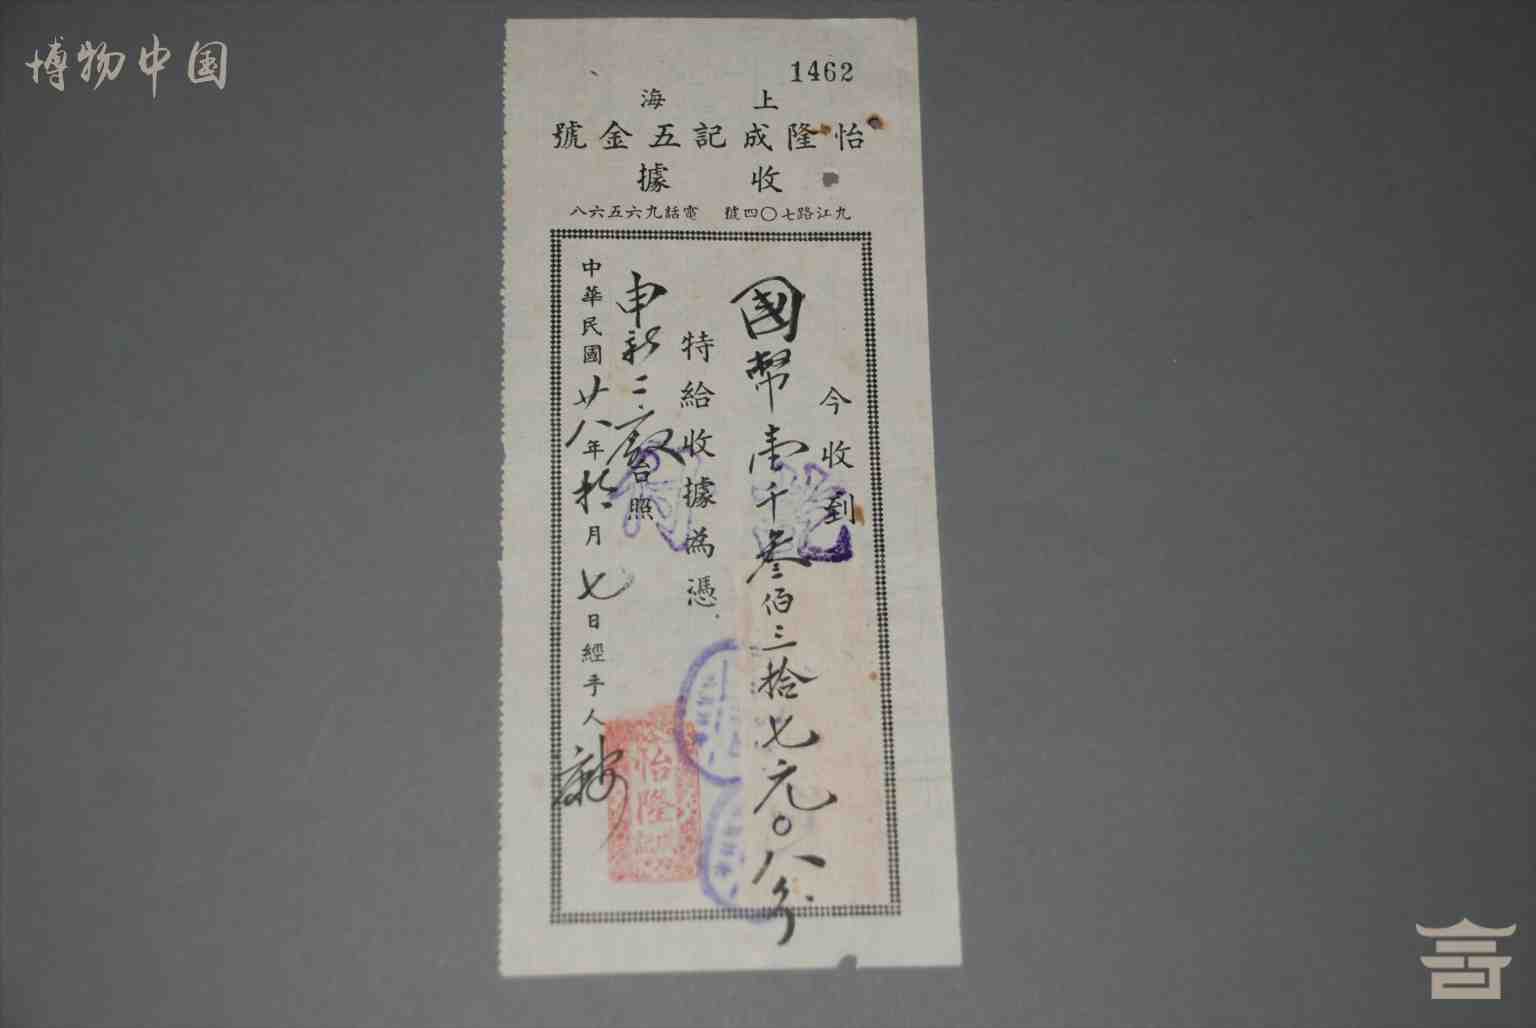 博物中国
1462
上海
怡隆成記五金號
收據
九江路七〇四號 電話九六五六八
今收到
國幣壹千叁佰三拾七元〇八分
特給收據為憑
申新二廠台照
中華民國廿八年拾月七日經手人
付訖
怡隆
成記